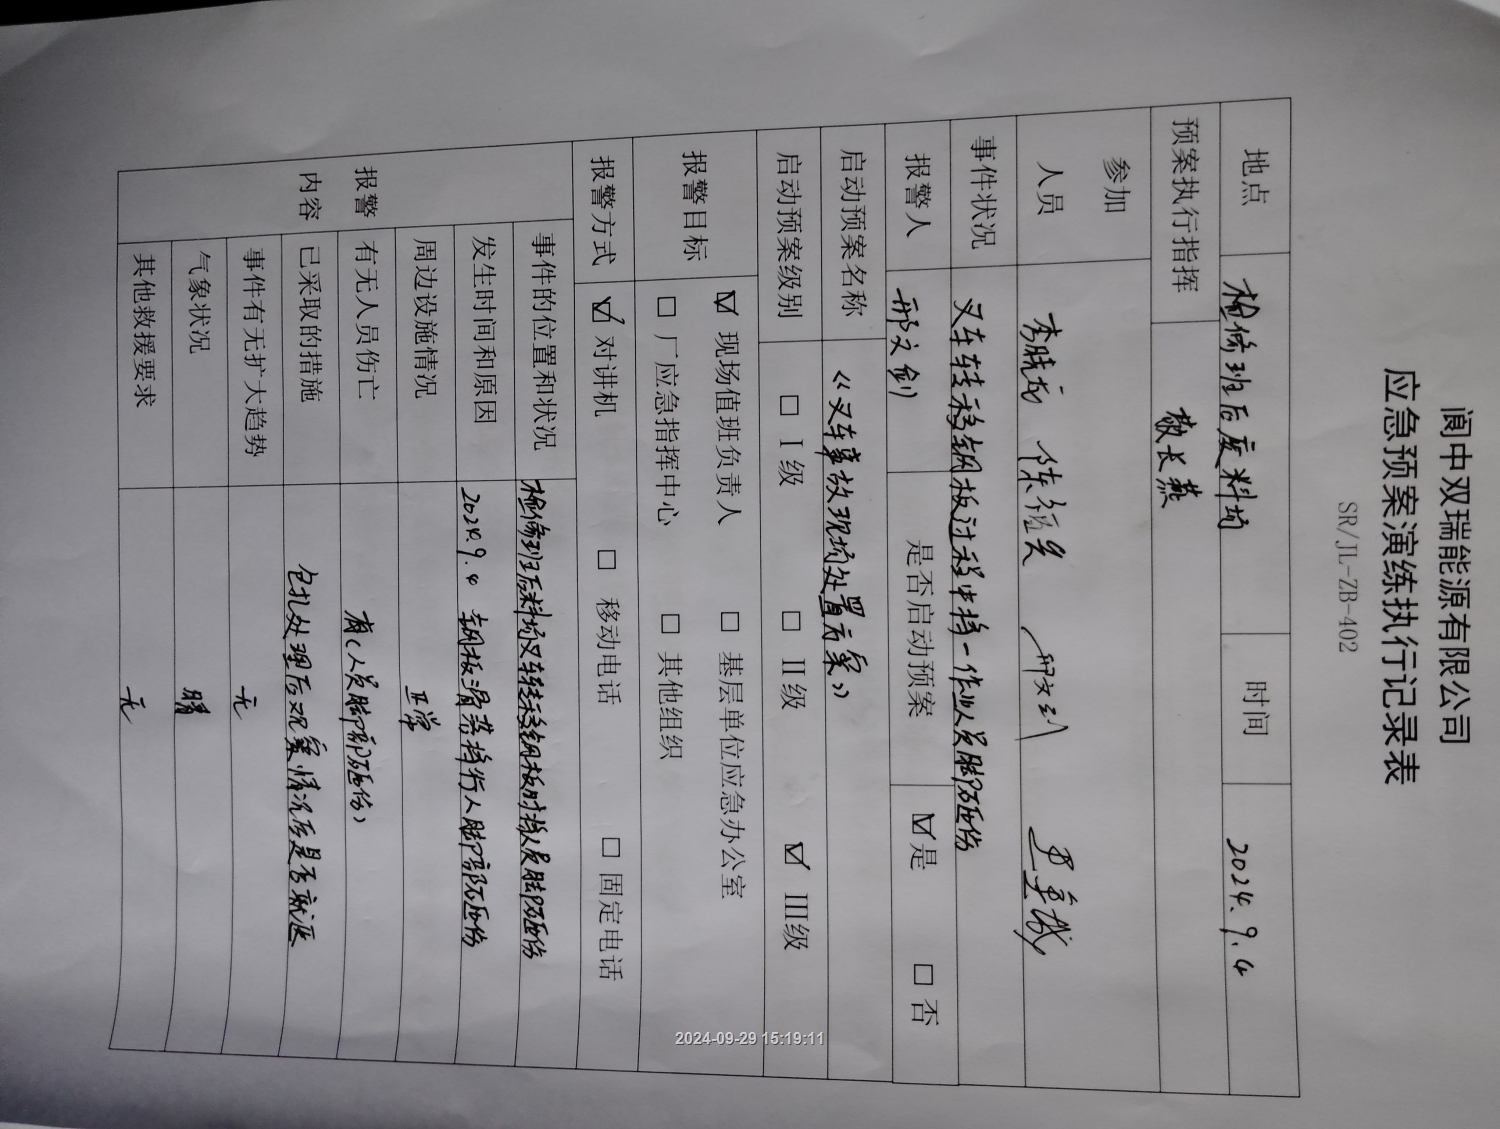 阆中双瑞能源有限公司
应急预案演练执行记录表
SR/JL-ZB-402
地点 检修班后废料场 时间 2024.9.4
预案执行指挥 敬长燕
参加人员 李晓龙 陈 邢文剑
事件状况 叉车转移钢板过程中将一作业人员脚砸伤
报警人 邢文剑 是否启动预案 ☑是 □否
启动预案名称 《叉车事故现场处置方案》
启动预案级别 □ I级 □ II级 ☑ III级
报警目标 ☑ 现场值班负责人 □ 基层单位应急办公室
□ 厂应急指挥中心 □ 其他组织
报警方式 ☑ 对讲机 □ 移动电话 □ 固定电话
报警内容
事件的位置和状况 检修班后料场叉车转移钢板时将人员脚砸伤
发生时间和原因 2024.9.4 钢板滑落将行人脚部砸伤
周边设施情况 正常
有无人员伤亡 有(人员脚部砸伤)
已采取的措施 包扎处理后观察情况后是否就医
事件有无扩大趋势 无
气象状况 晴
其他救援要求 无
2024-09-29 15:19:11